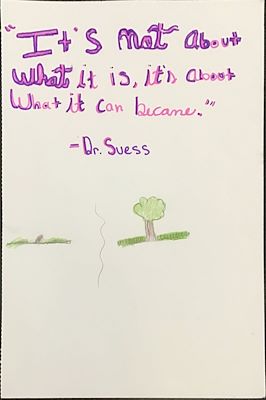 "It's not About
what it is, it's about
What it can becane."
-Dr. Suess